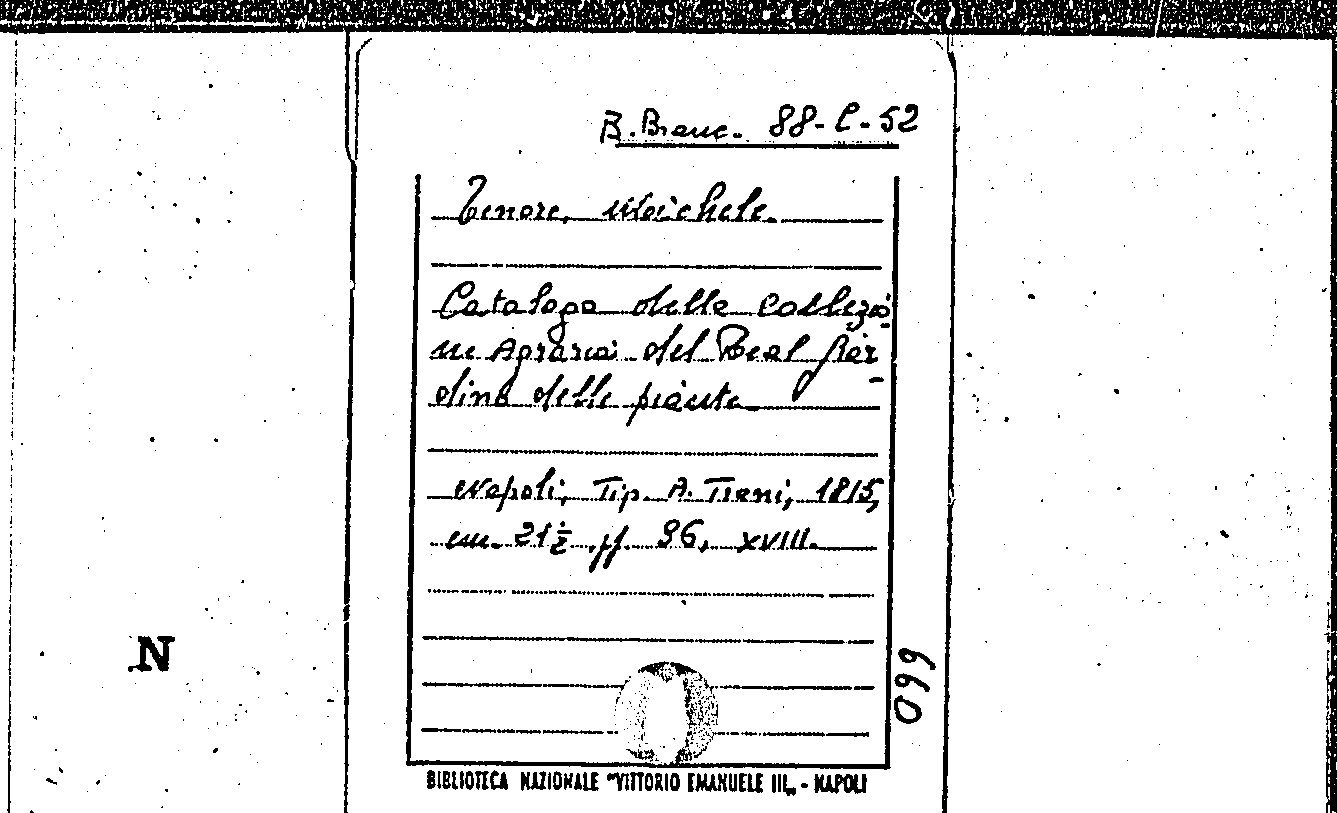 B. Branc. 88-C-52
Tenore, Michele.
Catalogo delle Collezio-
ni Agrarie del Real Giar-
dino delle piante.
Napoli, Tip. A. Trani, 1815,
cm. 21½ pp. 96, XVIII.
N
099
BIBLIOTECA NAZIONALE "VITTORIO EMANUELE III„ - NAPOLI